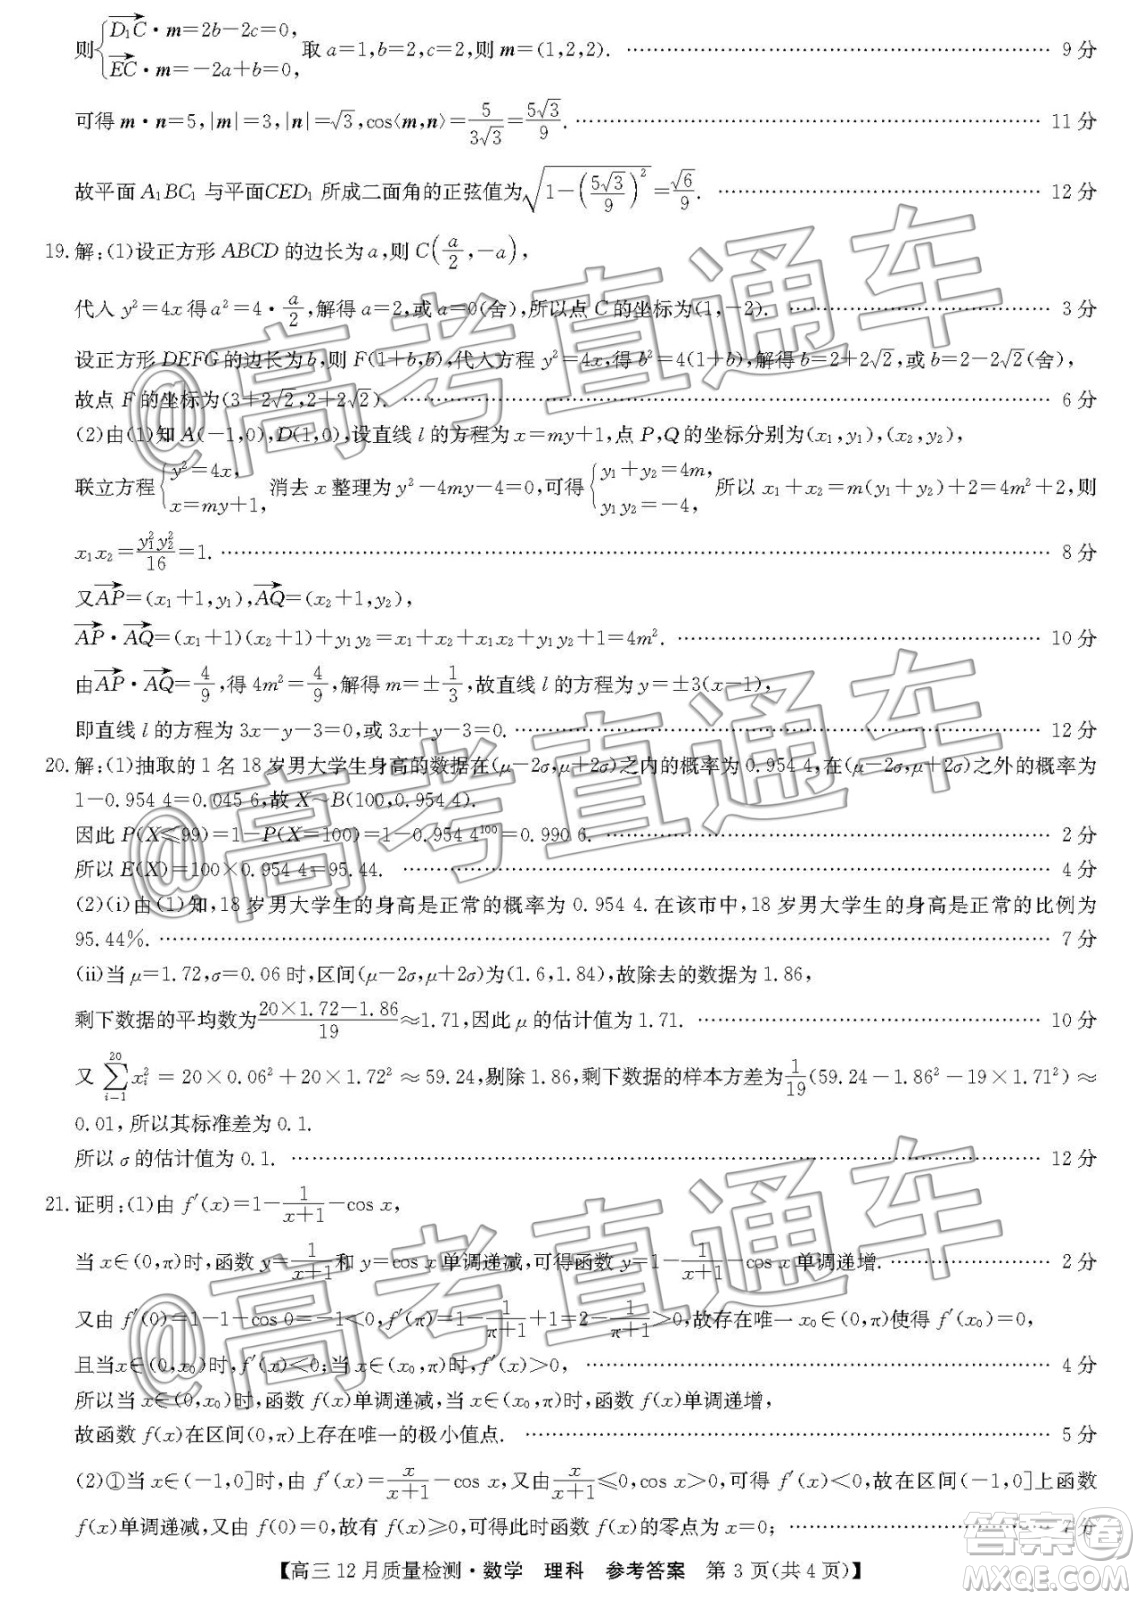 则{D₁C→·m=2b-2c=0, EC→·m=-2a+b=0, 取 a=1,b=2,c=2,则 m=(1,2,2). ………… 9 分
可得 m·n=5,|m|=3,|n|=√3,cos⟨m,n⟩=5/(3√3)=5√3/9. ………… 11 分
故平面 A₁BC₁ 与平面CED₁ 所成二面角的正弦值为√(1-(5√3/9)²)=√6/9. ………… 12 分
19.解:(1)设正方形 ABCD 的边长为 a,则 C(a/2,-a),
代入 y²=4x 得 a²=4·a/2,解得 a=2,或 a=0(舍),所以点 C 的坐标为(1,-2). ………… 3 分
设正方形 DEFG 的边长为 b,则 F(1+b,b),代入方程 y²=4x,得 b²=4(1+b),解得 b=2+2√2,或 b=2-2√2(舍),
故点 F 的坐标为(3+2√2,2+2√2). ………… 6 分
(2)由(1)知 A(-1,0),D(1,0),设直线 l 的方程为 x=my+1,点 P,Q 的坐标分别为(x₁,y₁),(x₂,y₂),
联立方程{y²=4x, x=my+1, 消去 x 整理为 y²-4my-4=0,可得{y₁+y₂=4m, y₁y₂=-4, 所以 x₁+x₂=m(y₁+y₂)+2=4m²+2,则
x₁x₂=y₁²y₂²/16=1. ………… 8 分
又AP→=(x₁+1,y₁),AQ→=(x₂+1,y₂),
AP→·AQ→=(x₁+1)(x₂+1)+y₁y₂=x₁+x₂+x₁x₂+y₁y₂+1=4m². ………… 10 分
由AP→·AQ→=4/9,得 4m²=4/9,解得 m=±1/3,故直线 l 的方程为 y=±3(x-1),
即直线 l 的方程为 3x-y-3=0,或 3x+y-3=0. ………… 12 分
20.解:(1)抽取的 1 名 18 岁男大学生身高的数据在(μ-2σ,μ+2σ)之内的概率为 0.954 4,在(μ-2σ,μ+2σ)之外的概率为
1-0.954 4=0.045 6,故 X~B(100,0.954 4).
因此 P(X≤99)=1-P(X=100)=1-0.954 4¹⁰⁰=0.990 6. ………… 2 分
所以 E(X)=100×0.954 4=95.44. ………… 4 分
(2)(i)由(1)知,18 岁男大学生的身高是正常的概率为 0.954 4.在该市中,18 岁男大学生的身高是正常的比例为
95.44%. ………… 7 分
(ii)当 μ=1.72,σ=0.06 时,区间(μ-2σ,μ+2σ)为(1.6,1.84),故除去的数据为 1.86,
剩下数据的平均数为(20×1.72-1.86)/19≈1.71,因此 μ 的估计值为 1.71. ………… 10 分
又 ∑(i-1→20) xᵢ²=20×0.06²+20×1.72²≈59.24,剔除 1.86,剩下数据的样本方差为1/19(59.24-1.86²-19×1.71²)≈
0.01,所以其标准差为 0.1.
所以 σ 的估计值为 0.1. ………… 12 分
21.证明:(1)由 f′(x)=1-1/(x+1)-cos x,
当 x∈(0,π)时,函数 y=1/(x+1)和 y=cos x 单调递减,可得函数 y=1-1/(x+1)-cos x 单调递增. ………… 2 分
又由 f′(0)=1-1-cos 0=-1<0,f′(π)=1-1/(π+1)+1=2-1/(π+1)>0,故存在唯一 x₀∈(0,π)使得 f′(x₀)=0,
且当x∈(0,x₀)时,f′(x)<0;当 x∈(x₀,π)时,f′(x)>0, ………… 4 分
所以当 x∈(0,x₀)时,函数 f(x)单调递减,当 x∈(x₀,π)时,函数 f(x)单调递增,
故函数 f(x)在区间(0,π)上存在唯一的极小值点. ………… 5 分
(2)①当 x∈(-1,0]时,由 f′(x)=x/(x+1)-cos x,又由x/(x+1)≤0,cos x>0,可得 f′(x)<0,故在区间(-1,0]上函数
f(x)单调递减,又由 f(0)=0,故有 f(x)≥0,可得此时函数 f(x)的零点为 0. ………… 7 分
【高三 12 月质量检测·数学 理科 参考答案 第 3 页(共 4 页)】
@高考直通车
@高考直通车
@高考直通车
答案圈
MXQE.COM